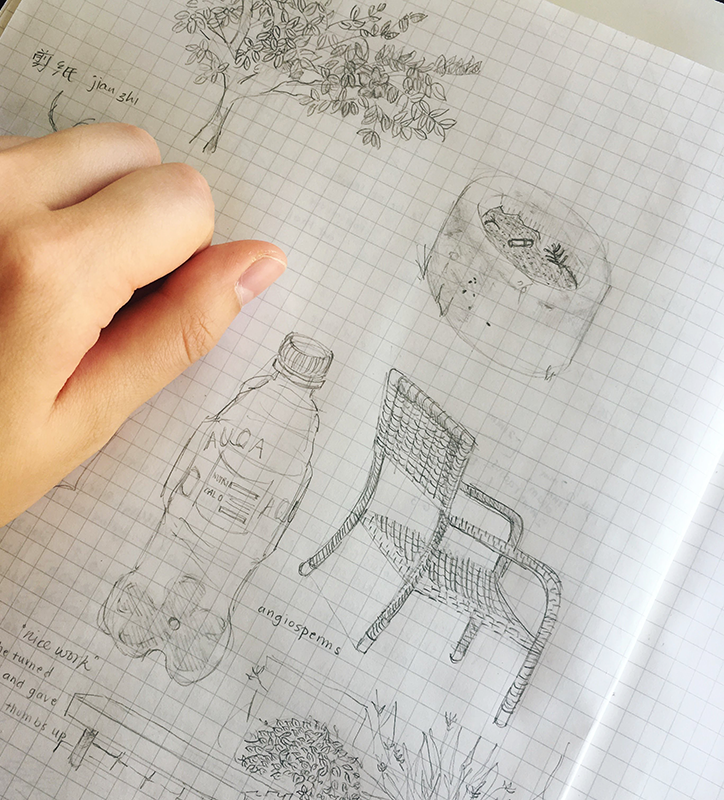 剪纸 jian zhi
AUQA
NUTRIE
CALO
angiosperms
"nice work"
he turned
and gave
thumbs up